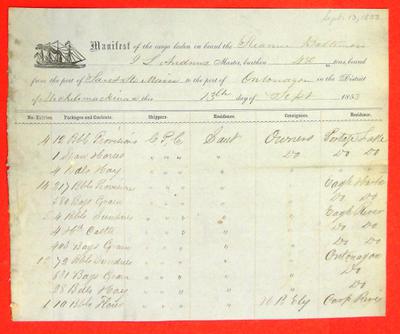 Sept. 13, 1853
Manifest of the cargo laden on board the Steamer Baltimore
Master, burthen tons, bound
from the port of Saut Ste Marie to the port of Ontonagon in the District
of Michilimackinac this 13th day of Sept 1853
No. Entries. Packages and Contents. Shippers. Residence. Consignees. Residence.
4 12 Bbls Provisions C. P. C. Saut Owners Portage Lake
1 Span Horses " " " Do Do Do
4 Bales Hay " " " Do Do
14 217 Bbls Provisions " " " Eagle Harbor
280 Bags Grain " " " Do Do
4 Bbls Sundries " " " Eagle River
4 Hd Cattle " " " Do Do
404 Bags Grain " " " Do Do
12 72 Bbls Sundries " " " Ontonagon
Bags Grain " " " Do
28 Bales Hay " " " Do
1 10 Bbls Flour " " " H B Ely Carp River